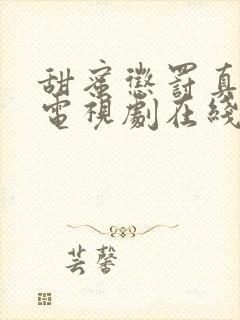 甜蜜懲罰真
電視劇在綫
芸馨